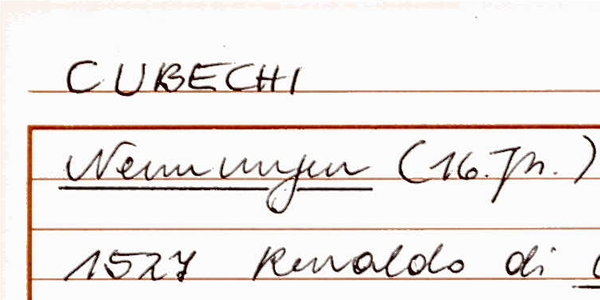 CUBECHI
Nennungen (16. Jh.)
1527 Renaldo di